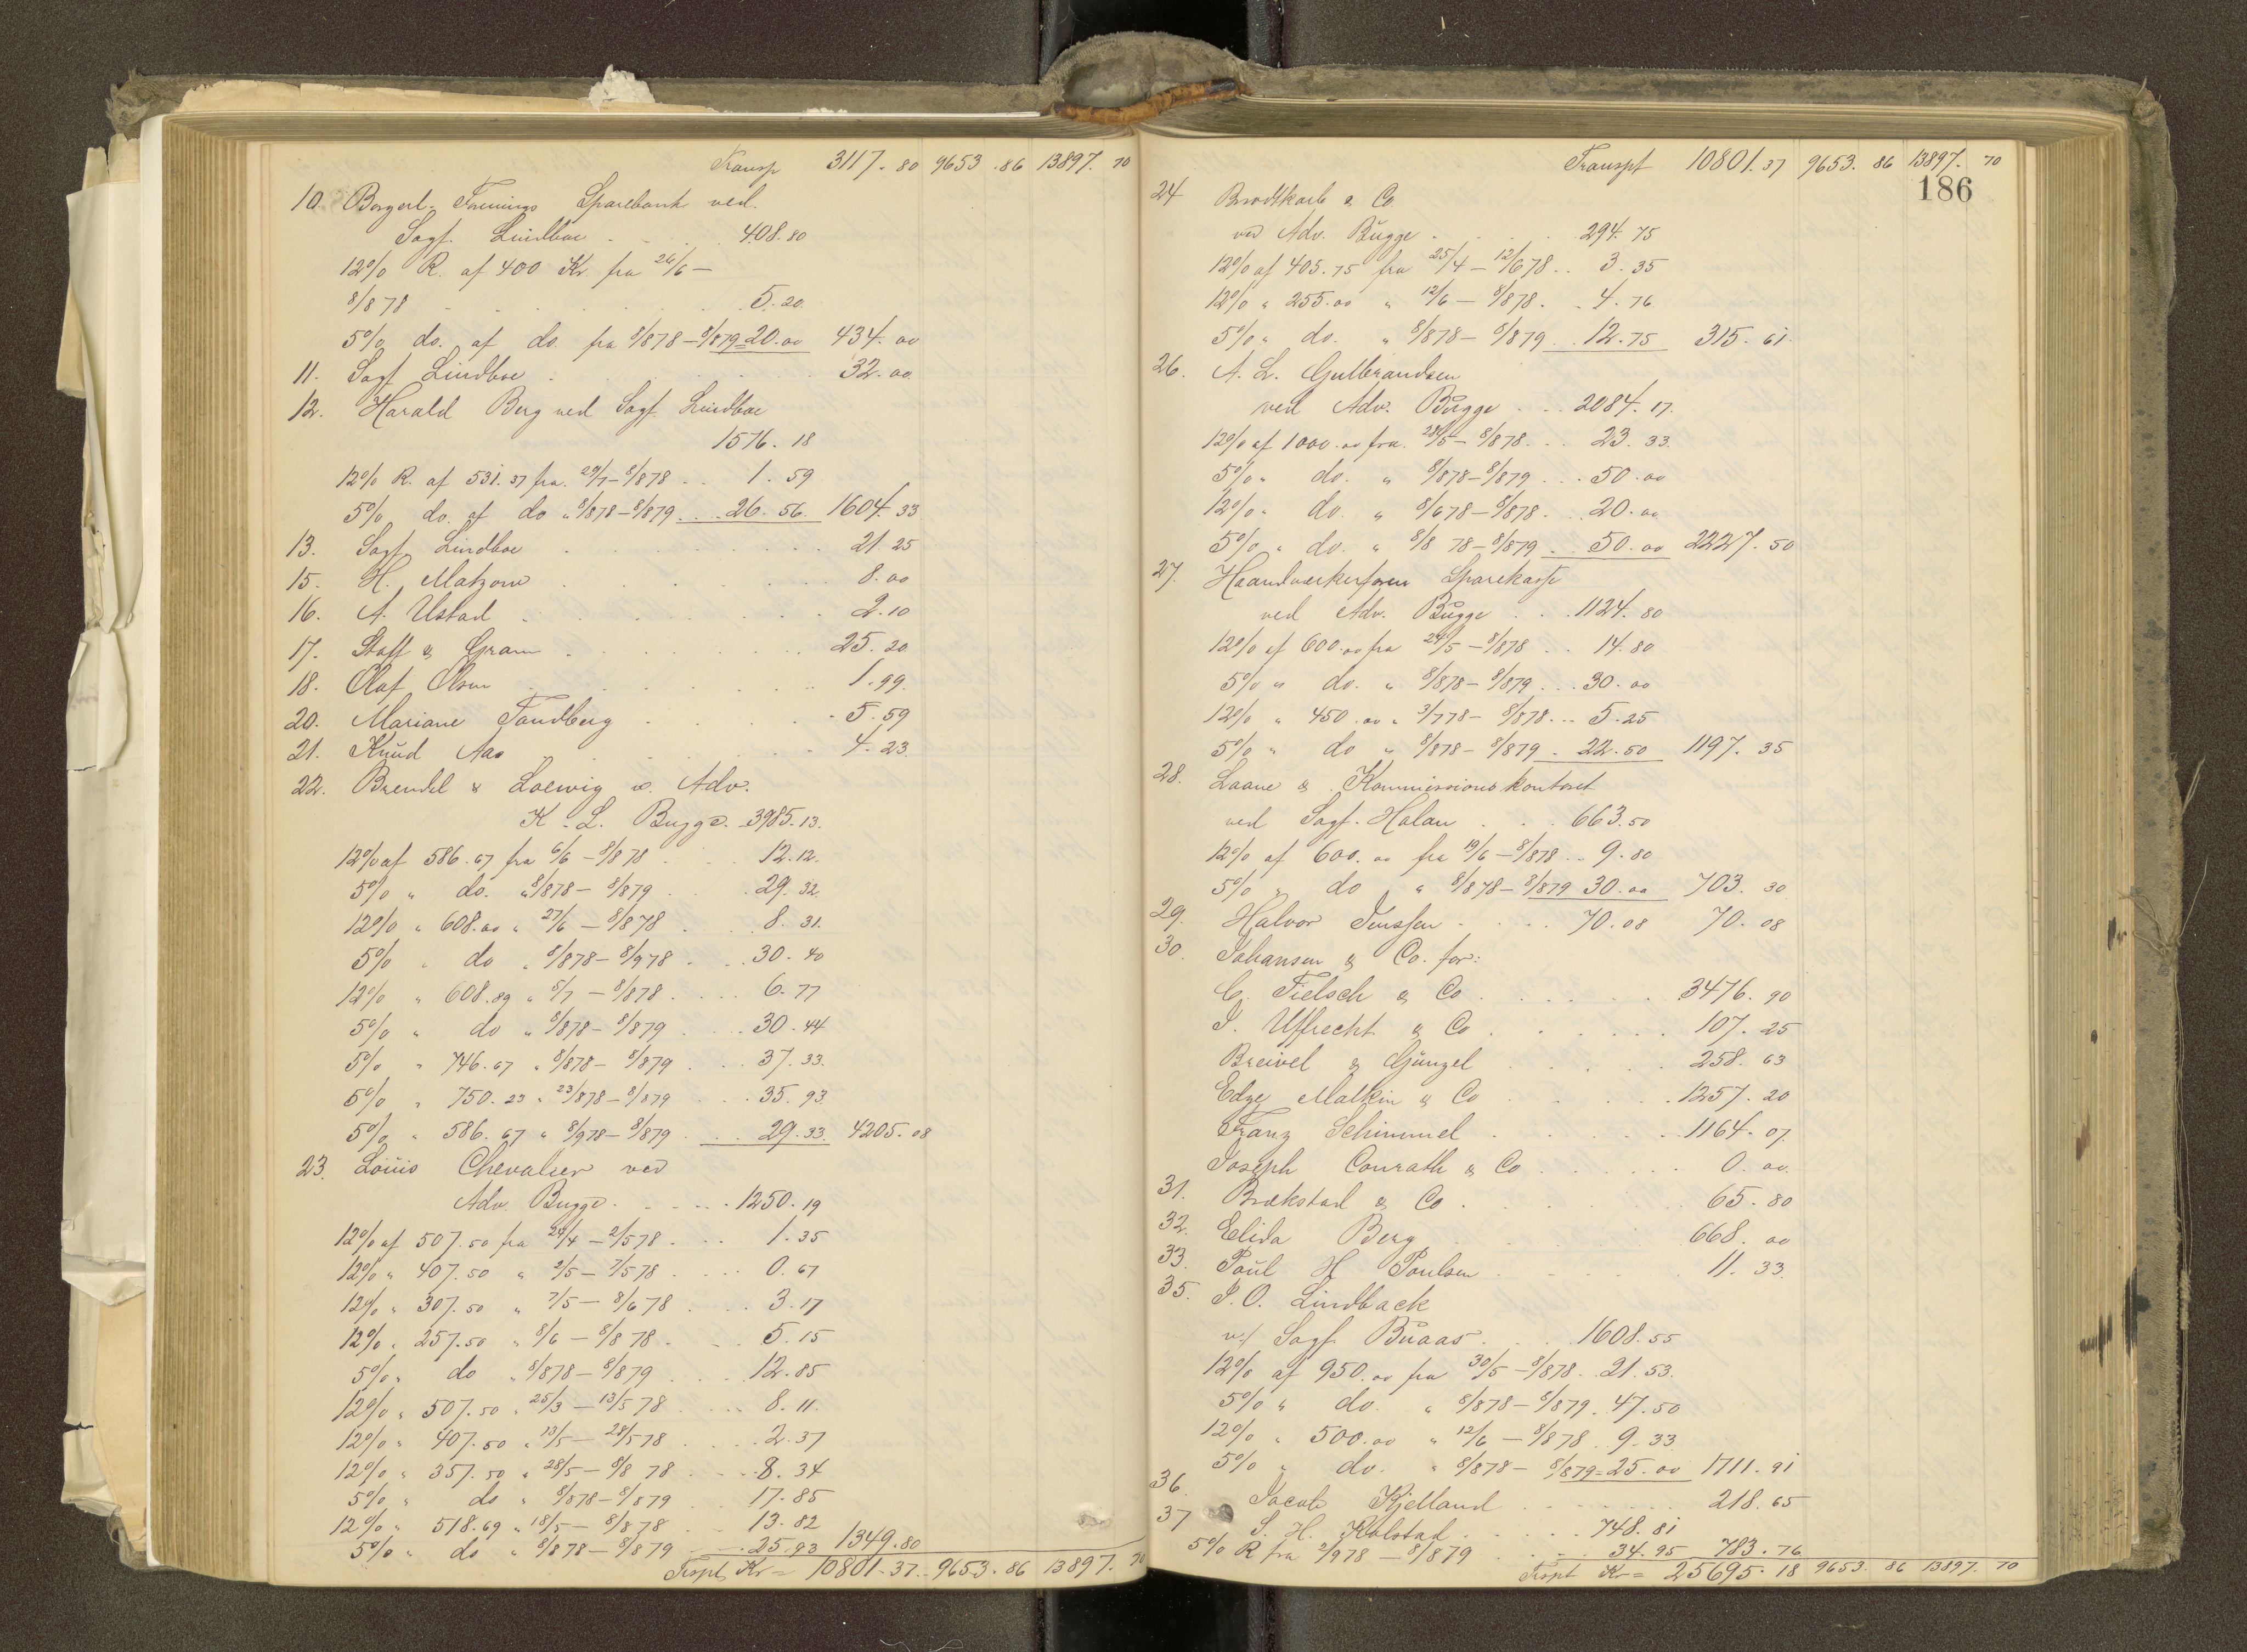 Transp 3117.80 9653.86 13897.70
10. Borgerl. Forenings Sparebank ved.
Sagf. Lindboe . . . 408.80
12% R. af 400 Kr fra 26/6 —
8/8 78 . . . 5.20
5% do. af do. fra 8/878 – 8/879 = 20.00 434.00
11. Sagf Lindboe . . . 32.00
12. Harald Berg ved Sagf. Lindboe
1576.18
12% R. af 531.37 fra. 29/7 – 8/878 . . 1.59
5% do. af do " 8/878 – 8/879 . . . 26.56. 1604.33
13. Sagf Lindboe . . . 21.25
15. H. Matzow . . . 8.00
16. A. Ustad . . . 2.10
17. Staff & Gram . . . 25.20
18. Olaf Olsen . . . 1.99
20. Mariane Tandberg . . . 5.59
21. Knud Aas . . . 4.23
22. Brendel & Loewig v. Adv.
K. L. Bugge. 3985.13.
12% af 586.67 fra 6/6 – 8/878 . . . 12.12.
5% " do. " 8/878 – 8/879 . . . 29.32
12% " 608.00 " 27/6 – 8/878 . . . 8.31.
5% " do " 8/878 – 8/978 . . . 30.40
12% " 608.89 " 5/7 – 8/878 . . . 6.77
5% " do " 8/878 – 8/879 . . . 30.44
5% " 746.67 " 8/878 – 8/879 . . . 37.33.
5% " 750.23 " 23/878 – 8/879 . . . 35.93
5% " 586.67 " 8/978 – 8/879 . . . 29.33. 4205.08
23. Louis Chevalier ved
Adv. Bugge . . . 1250.19
12% af 507.50 fra 24/4 – 2/578 . . . 1.35
12% " 407.50 " 2/5 – 7/578 . . . 0.67
12% " 307.50 " 7/5 – 8/678 . . . 3.17
12% " 257.50 " 8/6 – 8/878 . . . 5.15
5% " do " 8/878 – 8/879 . . . 12.85
12% " 507.50 " 25/3 – 13/578 . . . 8.11.
12% " 407.50 " 13/5 – 28/578 . . . 2.37
12% " 357.50 " 28/5 – 8/878 . . . 8.34
5% " do " 8/878 – 8/879 . . . 17.85
12% " 518.69 " 18/5 – 8/878 . . . 13.82
5% " do " 8/878 – 8/879 . . . 25.93 1349.80
Trspt Kr = 10801.37 9653.86 13897.70
Transpt 10801.37 9653.86 13897.70
186
24 Brodtkorb & Co
ved Adv. Bugge . . . 294.75
12% af 405.75 fra 25/4 – 12/678 . . 3.35
12% " 255.00 " 12/6 – 8/878 . . 4.76
5% " do. " 8/878 – 8/879 . . 12.75 315.61
26. A. L. Gulbrandsen
ved Adv. Bugge . . . 2084.17.
12% af 1000.00 fra. 28/5 – 8/878 . . . 23.33.
5% " do. " 8/878 – 8/879 . . . 50.00
12% " do. " 8/678 – 8/878 . . . 20.00
5% " do. " 8/878 – 8/879 . 50.00 2227.50
27. Haandværkerforen Sparekasse
ved Adv. Bugge . . . 1124.80
12% af 600.00 fra 24/5 – 8/878 . . 14.80
5% " do. " 8/878 – 8/879 . . . 30.00
12% " 450.00 " 3/778 – 8/878 . . . 5.25
5% " do " 8/878 – 8/879 . 22.50 1197.35
28. Laane & Kommissionskontoret
ved Sagf. Halan . . . 663.50
12% af 600.00 fra 19/6 – 8/878 . . 9.80
5% " do " 8/878 – 8/879 30.00 703.30
29. Halvor Jenssen . . . 70.08 70.08
30. Johansen & Co. for:
C. Tielsch & Co . . . 3476.90
J. Uffrecht & Co . . . 107.25
Breivel & Günzel . . . 258.63
Edge Malkin & Co . . . 1257.20
Franz Schimmel . . . 1164.07
Joseph Conrath & Co . . . 0.00
31. Brækstad & Co . . . 65.80
32. Elida Berg . . . 668.00
33. Paul H Poulsen . . . 11.33.
35. P.O. Lindback
v/ Sagf. Buaas . . . 1608.55
12% af 950.00 fra 30/5 – 8/878 . 21.53.
5% " do. " 8/878 – 8/879 . 47.50
12% " 500.00 " 12/6 – 8/878 . . 9.33
5% " do. " 8/878 – 8/879 = 25.00 1711.91
36. Jacob Kjelland . . . 218.65
37 S. H. Kolstad . . . 748.81
5% R fra 2/978 – 8/879 . . . 34.95 783.76
Trspt Kr = 25695.18 9653.86 13897.70